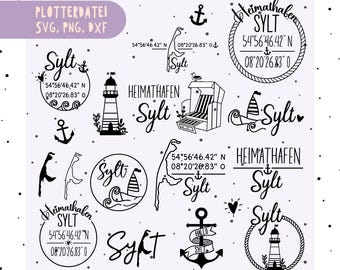 PLOTTERDATEI
SVG, PNG, DXF
Sylt
54°56'46.42" N
08°20'26.83" O
54°56'46.42" N
08°20'26.83" O
Sylt
Heimathafen
SYLT
54°56'46.42" N
08°20'26.83" O
HEIMATHAFEN
Sylt
Sylt
Sylt
54°56'46.42" N
08°20'26.83" O
Sylt
HEIMATHAFEN
54°56'46.42" N
08°20'26.83" O
Heimathafen
SYLT
54°56'46.42" N
08°20'26.83" O
Sylt
Sylt